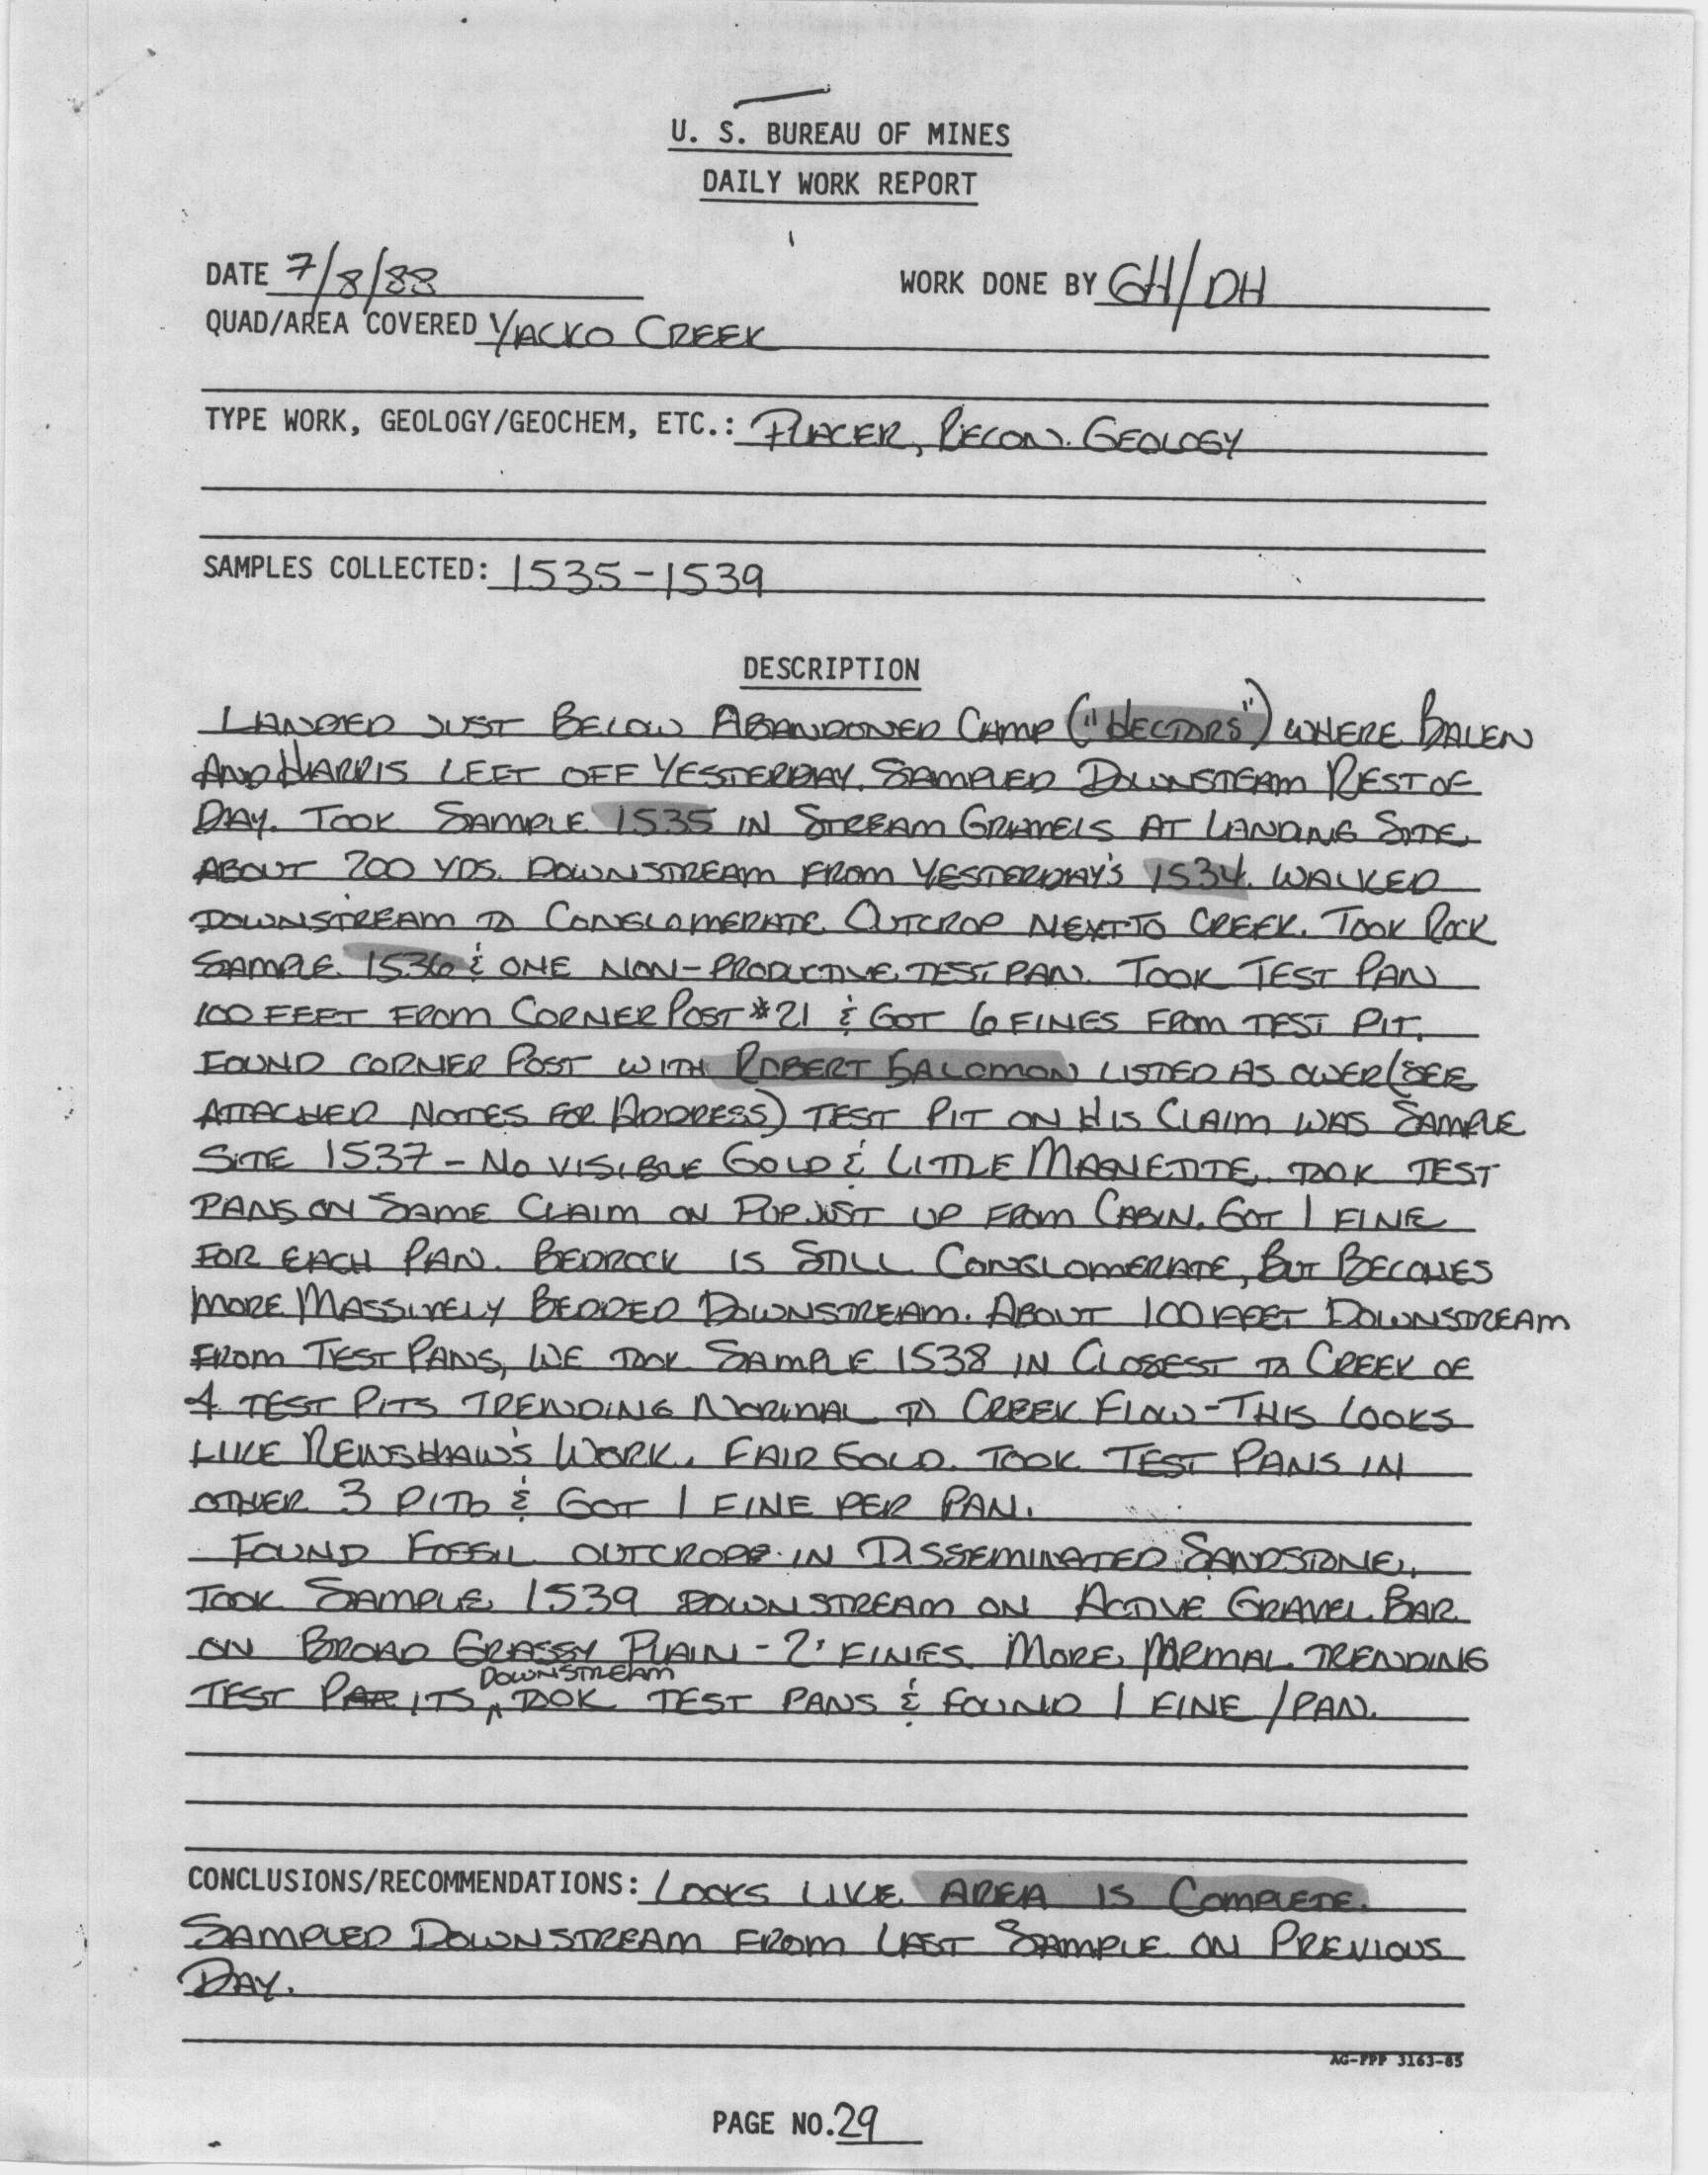 U. S. BUREAU OF MINES
DAILY WORK REPORT
DATE 7/8/88 WORK DONE BY GH/DH
QUAD/AREA COVERED YACKO CREEK
TYPE WORK, GEOLOGY/GEOCHEM, ETC.: PLACER, RECON. GEOLOGY
SAMPLES COLLECTED: 1535-1539
DESCRIPTION
LANDED JUST BELOW ABANDONED CAMP ("HECTORS") WHERE BALEN
AND HARRIS LEFT OFF YESTERDAY. SAMPLED DOWNSTEAM REST OF
DAY. TOOK SAMPLE 1535 IN STREAM GRAVELS AT LANDING SITE
ABOUT 200 YDS. DOWNSTREAM FROM YESTERDAY'S 1534. WALKED
DOWNSTREAM TO CONGLOMERATE OUTCROP NEXT TO CREEK. TOOK ROCK
SAMPLE 1536 & ONE NON-PRODUCTIVE TEST PAN. TOOK TEST PAN
100 FEET FROM CORNER POST #21 & GOT 6 FINES FROM TEST PIT.
FOUND CORNER POST WITH ROBERT SALOMON LISTED AS OWER (SEE
ATTACHED NOTES FOR ADDRESS) TEST PIT ON HIS CLAIM WAS SAMPLE
SITE 1537 - NO VISIBLE GOLD & LITTLE MAGNETITE. TOOK TEST
PANS ON SAME CLAIM ON PUP JUST UP FROM CABIN. GOT 1 FINE
FOR EACH PAN. BEDROCK IS STILL CONGLOMERATE, BUT BECOMES
MORE MASSIVELY BEDDED DOWNSTREAM. ABOUT 100 FEET DOWNSTREAM
FROM TEST PANS, WE TOOK SAMPLE 1538 IN CLOSEST TO CREEK OF
4 TEST PITS TRENDING NORMAL TO CREEK FLOW - THIS LOOKS
LIKE RENSHAW'S WORK. FAIR GOLD. TOOK TEST PANS IN
OTHER 3 PITS & GOT 1 FINE PER PAN.
FOUND FOSSIL OUTCROPS IN DISSEMINATED SANDSTONE.
TOOK SAMPLE 1539 DOWNSTREAM ON ACTIVE GRAVEL BAR
ON BROAD GRASSY PLAIN - 2' FINES MORE NORMAL TRENDING
TEST PITS, DOWNSTREAM TOOK TEST PANS & FOUND 1 FINE /PAN.
CONCLUSIONS/RECOMMENDATIONS: LOOKS LIKE AREA IS COMPLETE.
SAMPLED DOWNSTREAM FROM LAST SAMPLE ON PREVIOUS
DAY.
AG-FPP 3163-85
PAGE NO. 29